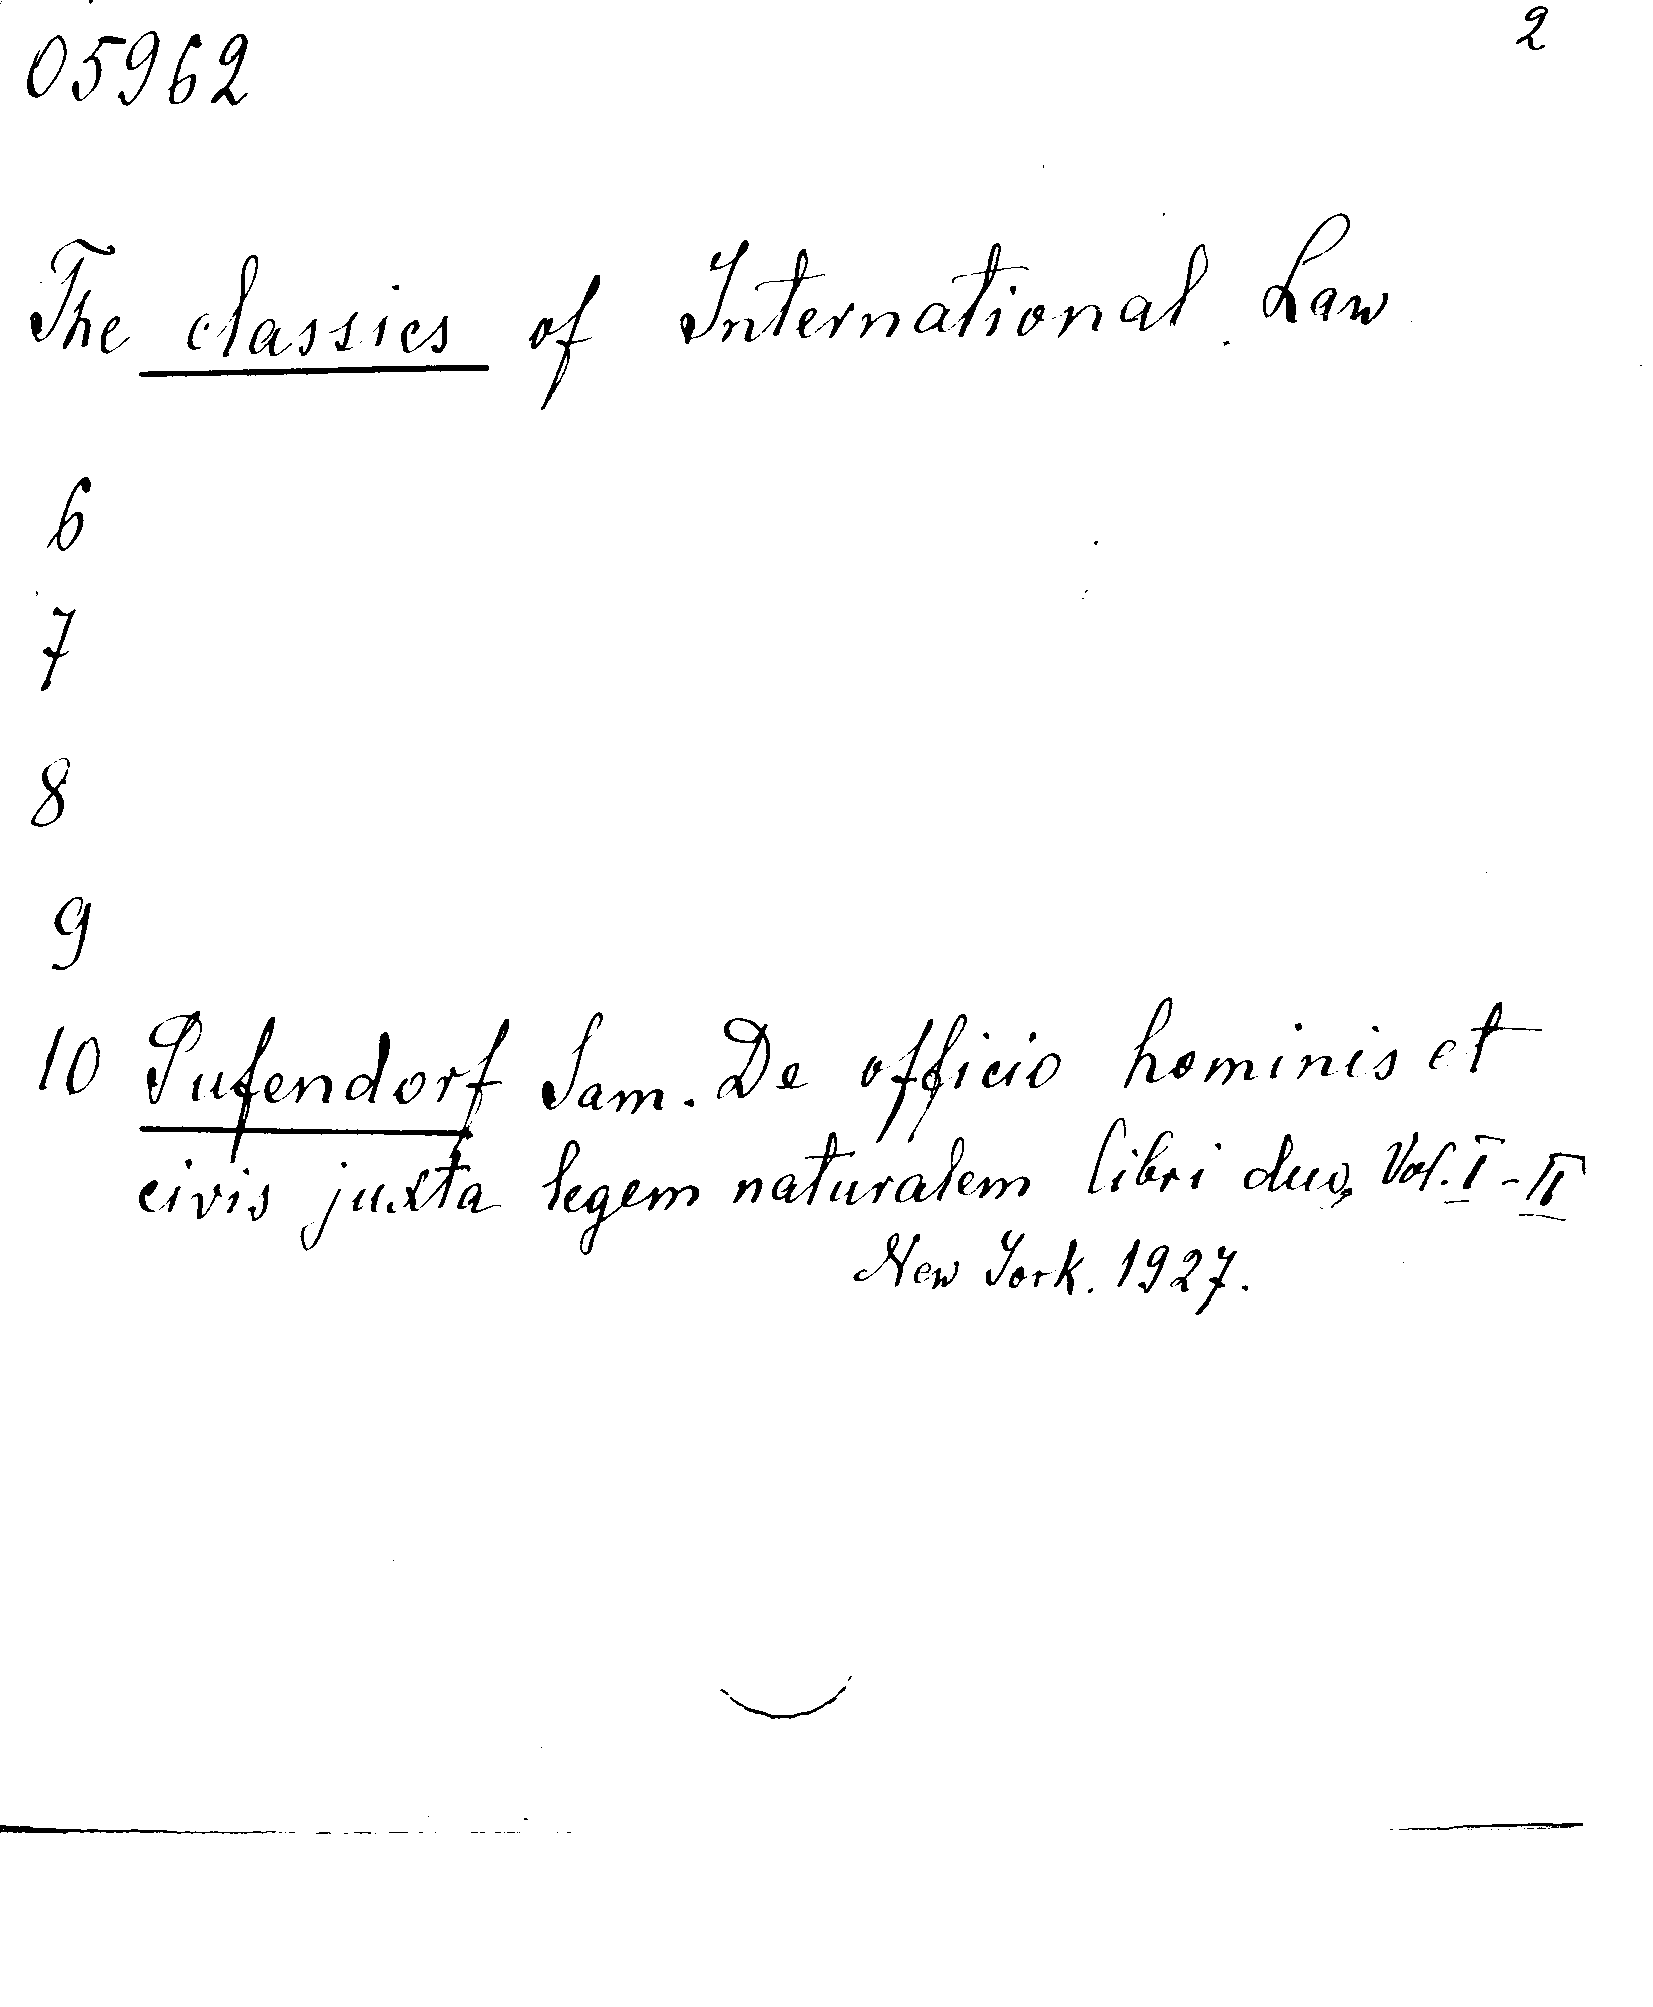 05962
2
The classics of International Law
6
7
8
9
10 Pufendorf Sam. De officio hominis et
civis juxta legem naturalem libri duo, Vol. I - II
New York. 1927.